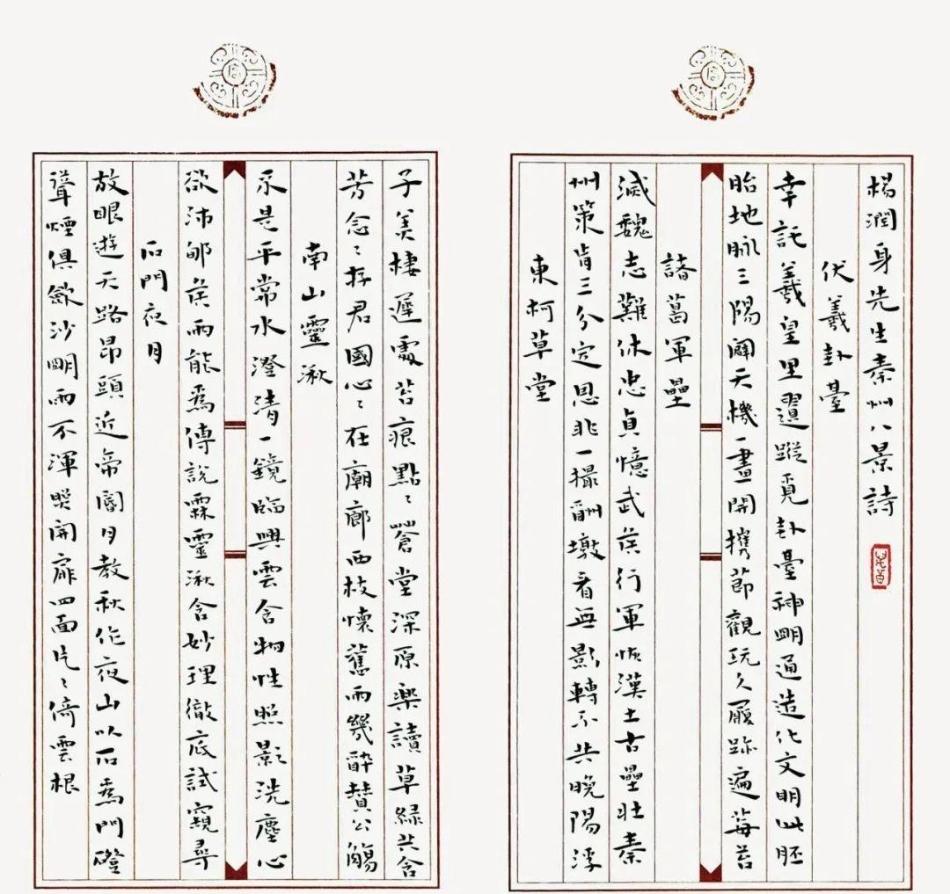 楊潤身先生秦州八景詩
伏羲卦臺
幸託羲皇里選蹤覓卦臺神明通造化文明此胚
胎地脈三陽闢天機一畫開攜節觀玩久屐跡遍莓苔
諸葛軍壘
滅魏志難休忠貞憶武侯行軍恢漢土古壘壯秦
州策肯三分定恩非一撮酬墩看無影轉不共晚陽浮
東柯草堂
子美棲遲處苔痕點〻蒼堂深原樂讀草綠共含
芳念〻存君國心〻在廟廊西枝懷舊雨幾醉贊公觴
南山靈湫
不是平常水澄清一鏡臨興雲含物性照影洗塵心
欲沛郇侯雨能爲傅說霖靈湫含妙理徹底試窺尋
石門夜月
放眼遊天路昂頭近帝閽月教秋作夜山以石爲門磴
聳煙俱斂沙明雨不渾興開扉四面片〻倚雲根